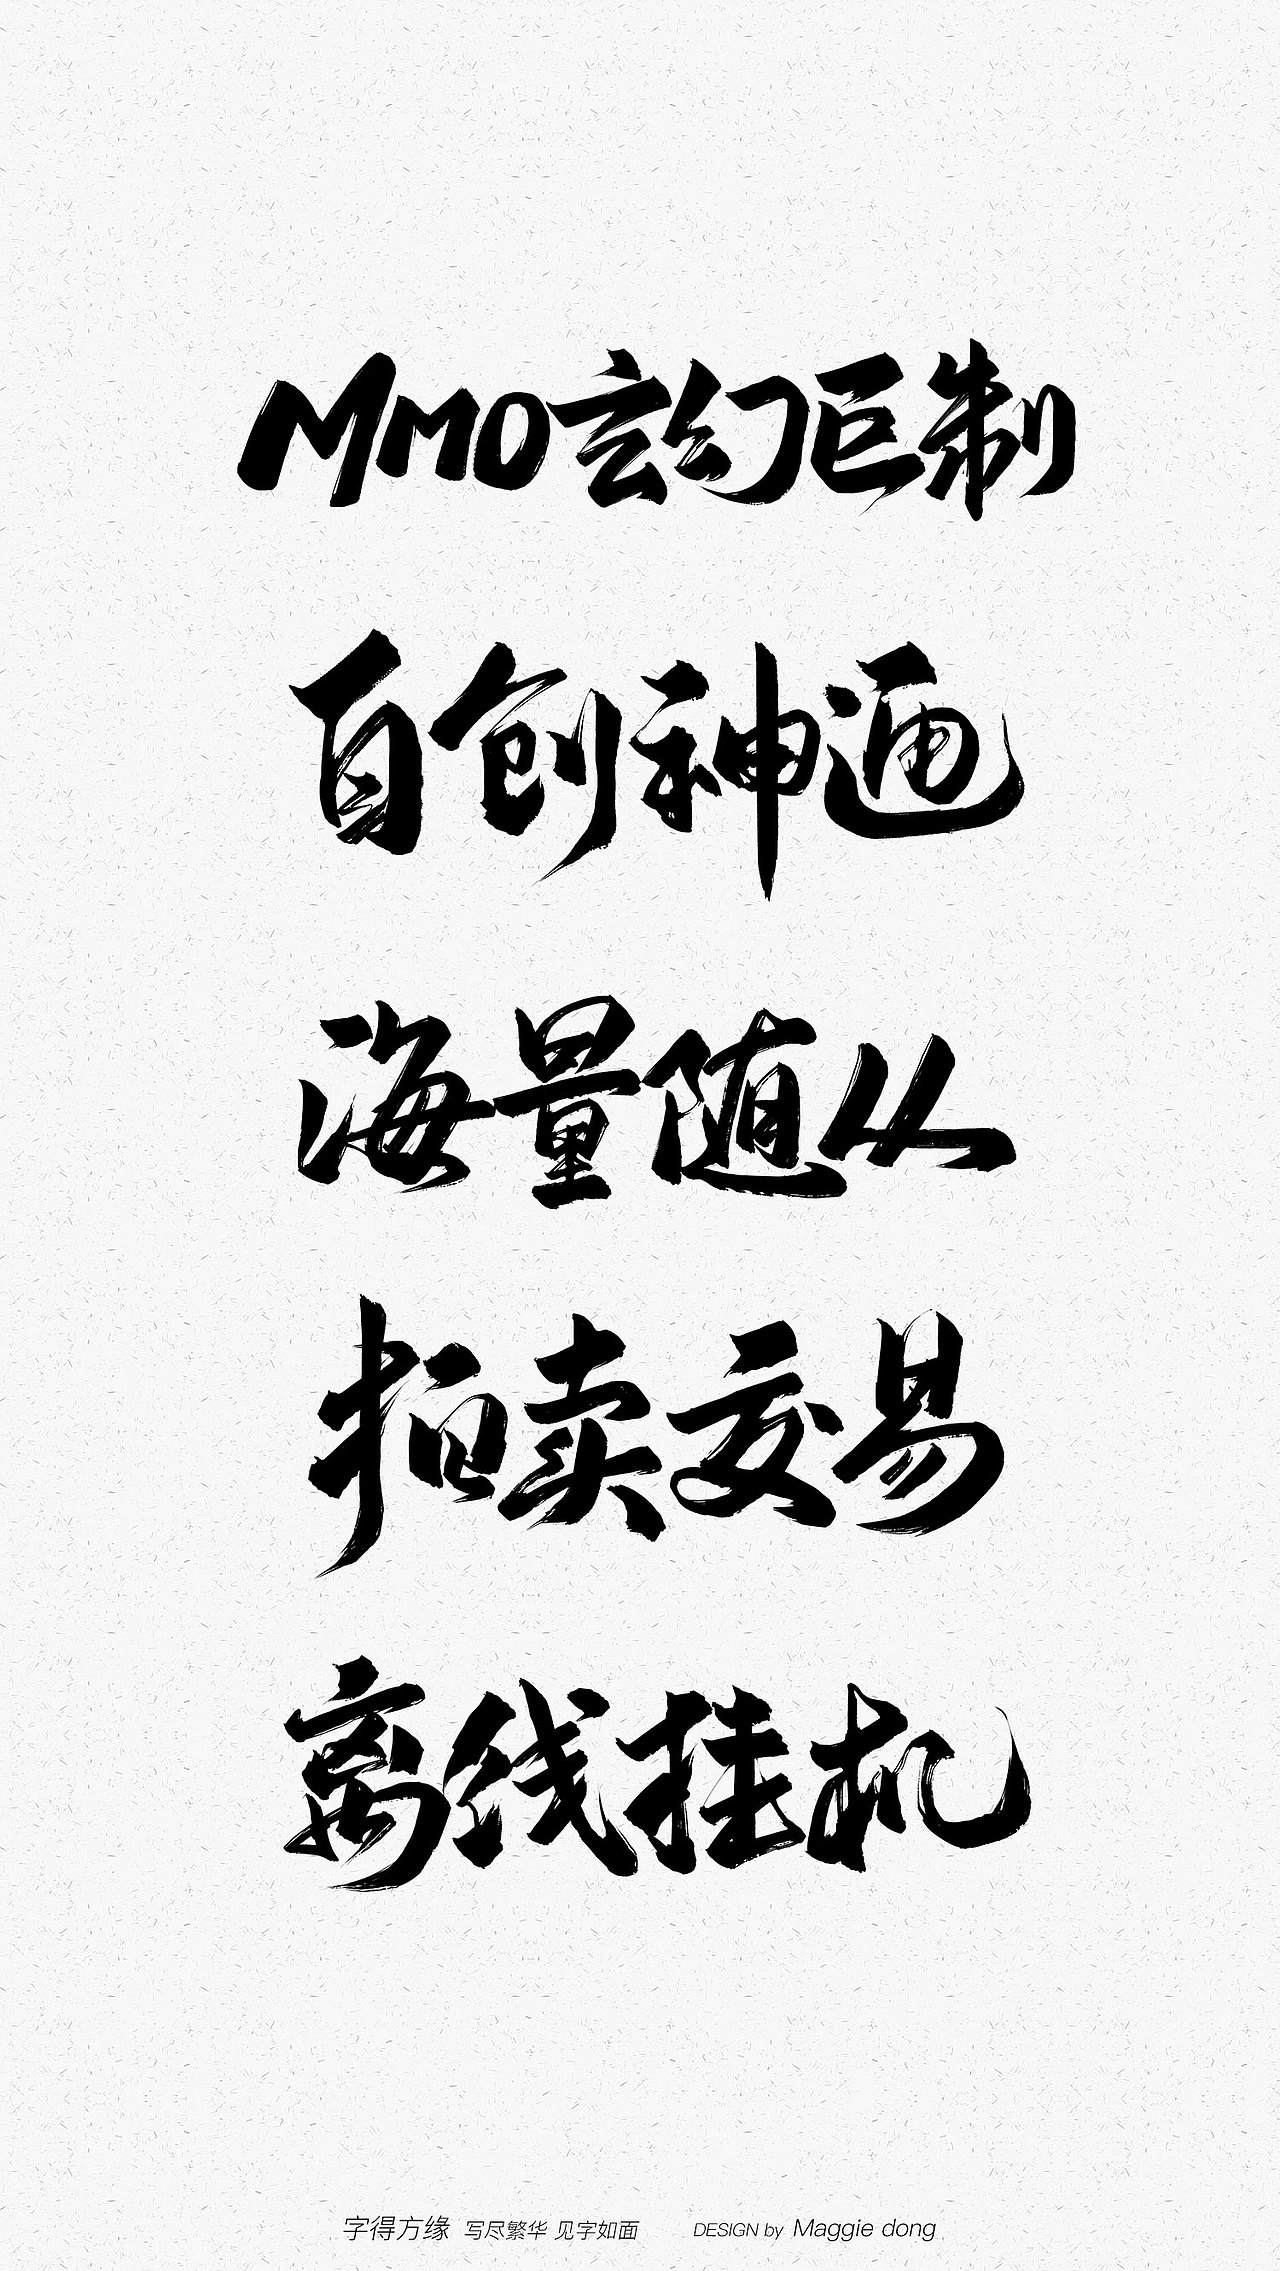 MMO玄幻巨制
自创神通
海量随从
拍卖交易
离线挂机
字得方缘 写尽繁华 见字如面 DESIGN by Maggie dong